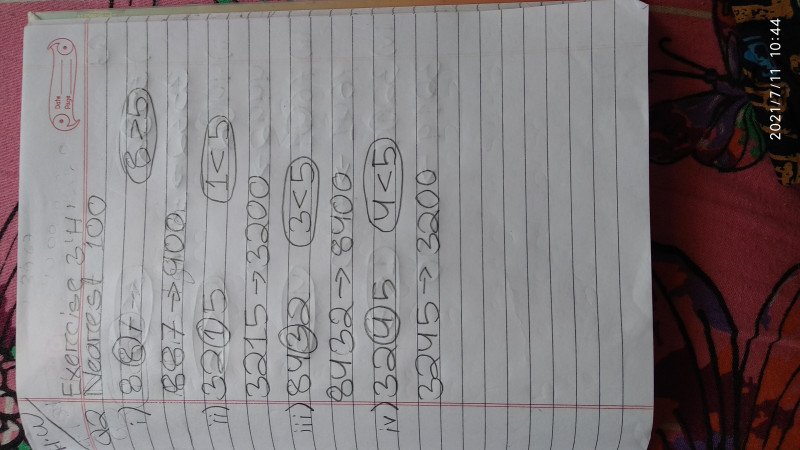 H.W
Date
Page
Exercise 3'H'
Q2 Nearest 100
i) 867 → 6>5
867 → 900
ii) 3215 1<5
3215 → 3200
iii) 8432 3<5
8432 → 8400
iv) 3245 4<5
3245 → 3200
2021/7/11 10:44